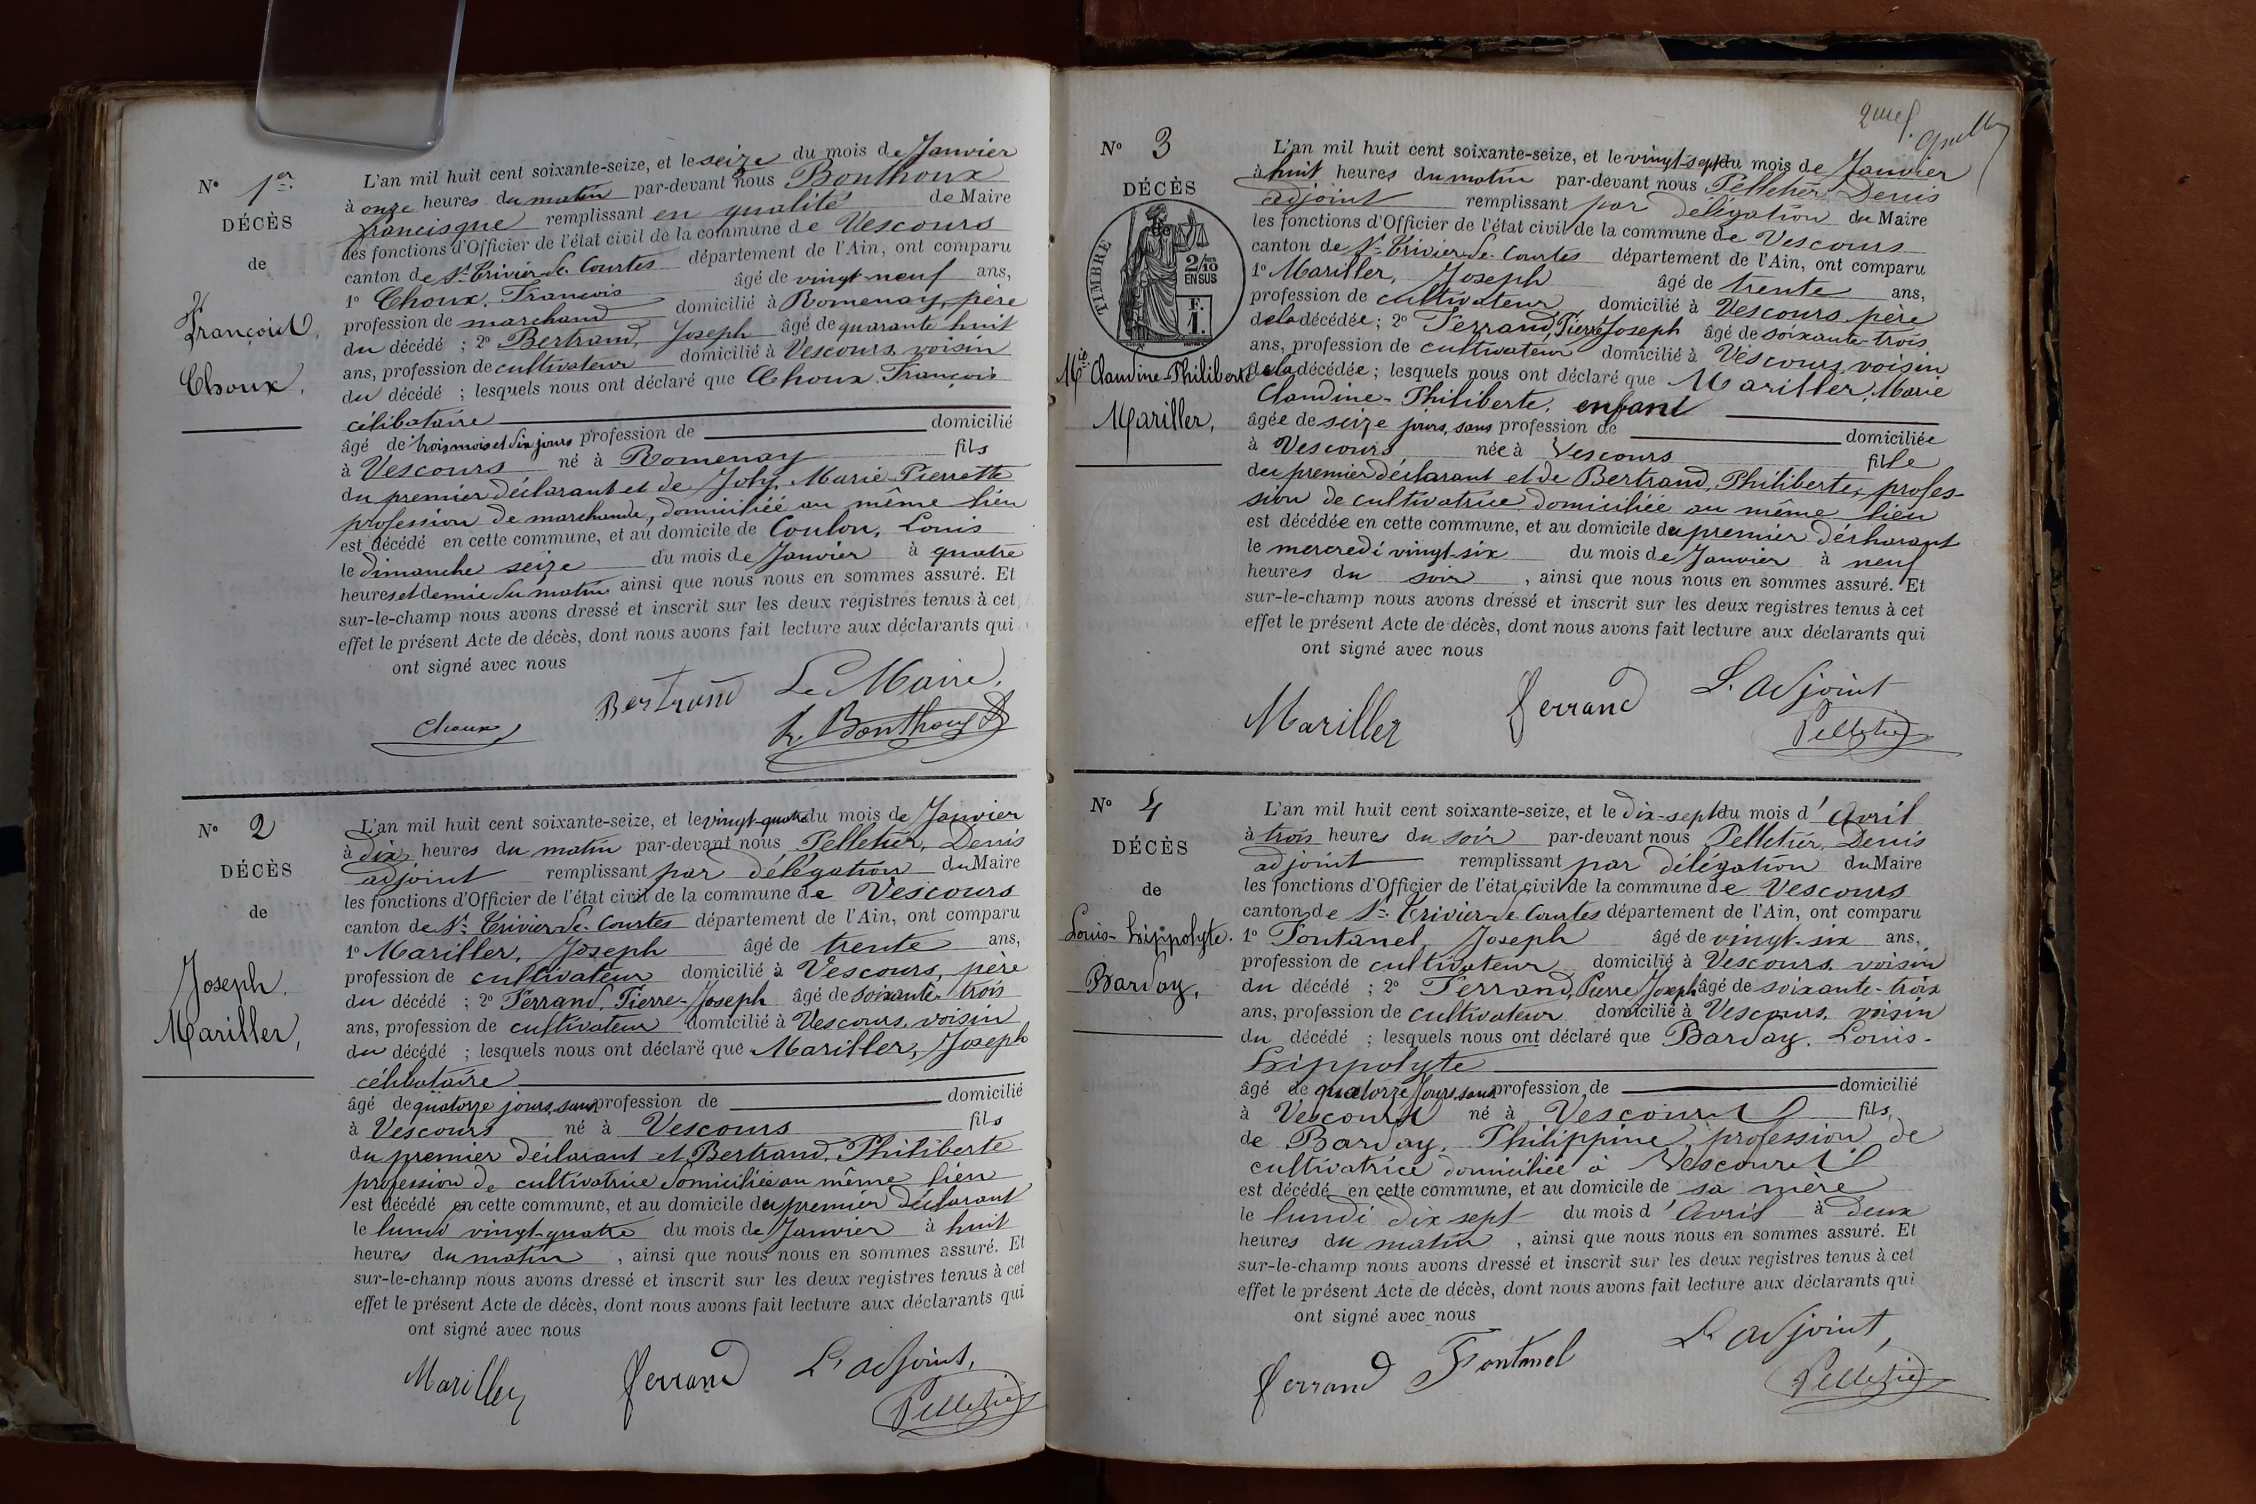 N° 1er
DÉCÈS
de
François
Choux.
L'an mil huit cent soixante-seize, et le seize du mois de Janvier
à onze heures du matin par-devant nous Bonthoux
francisque remplissant en qualité de Maire
les fonctions d'Officier de l'état civil de la commune de Vescours
canton de St Trivier de Courtes département de l'Ain, ont comparu
1° Choux, François âgé de vingt-neuf ans,
profession de marchand domicilié à Romenay, père
du décédé ; 2° Bertrand, Joseph âgé de quarante huit
ans, profession de cultivateur domicilié à Vescours, voisin
du décédé ; lesquels nous ont déclaré que Choux. François
célibataire
âgé de trois mois et dix jours profession de domicilié
à Vescours né à Romenay fils
du premier déclarant et de Joly, Marie Pierrette
profession de marchande, domiciliée au même lieu
est décédé en cette commune, et au domicile de Coulon, Louis
le dimanche seize du mois de Janvier à quatre
heures et demie du matin ainsi que nous nous en sommes assuré. Et
sur-le-champ nous avons dressé et inscrit sur les deux registres tenus à cet
effet le présent Acte de décès, dont nous avons fait lecture aux déclarants qui
ont signé avec nous
Choux Bertrand Le Maire,
Bonthoux
N° 2
DÉCÈS
de
Joseph
Mariller,
L'an mil huit cent soixante-seize, et le vingt-quatre du mois de Janvier
à dix heures du matin par-devant nous Pelletier, Denis
adjoint remplissant par délégation du Maire
les fonctions d'Officier de l'état civil de la commune de Vescours
canton de St Trivier de Courtes département de l'Ain, ont comparu
1° Mariller, Joseph âgé de trente ans,
profession de cultivateur domicilié à Vescours, père
du décédé ; 2° Ferrand, Pierre-Joseph âgé de soixante-trois
ans, profession de cultivateur domicilié à Vescours, voisin
du décédé ; lesquels nous ont déclaré que Mariller, Joseph
célibataire
âgé de quatorze jours, sans profession de domicilié
à Vescours né à Vescours fils
du premier déclarant et Bertrand, Philiberte
profession de cultivatrice domiciliée au même lieu
est décédé en cette commune, et au domicile du premier déclarant
le lundi vingt-quatre du mois de Janvier à huit
heures du matin , ainsi que nous nous en sommes assuré. Et
sur-le-champ nous avons dressé et inscrit sur les deux registres tenus à cet
effet le présent Acte de décès, dont nous avons fait lecture aux déclarants qui
ont signé avec nous
Mariller ferrand L'adjoint,
Pelletier
N° 3
DÉCÈS
de
TIMBRE
2/10
EN SUS
F.
1.
Mie Claudine-Philiberte
Mariller,
L'an mil huit cent soixante-seize, et le vingt-sept du mois de Janvier
à huit heures du matin par-devant nous Pelletier, Denis
adjoint remplissant par délégation du Maire
les fonctions d'Officier de l'état civil de la commune de Vescours
canton de St Trivier de Courtes département de l'Ain, ont comparu
1° Mariller, Joseph âgé de trente ans,
profession de cultivateur domicilié à Vescours, père
de la décédée ; 2° Ferrand, Pierre Joseph âgé de soixante-trois
ans, profession de cultivateur domicilié à Vescours, voisin
de la décédée ; lesquels nous ont déclaré que Mariller, Marie
Claudine-Philiberte, enfant
âgée de seize jours, sans profession de domiciliée
à Vescours née à Vescours fille
du premier déclarant et de Bertrand, Philiberte, profes-
sion de cultivatrice domiciliée au même lieu
est décédée en cette commune, et au domicile du premier déclarant
le mercredi vingt-six du mois de Janvier à neuf
heures du soir , ainsi que nous nous en sommes assuré. Et
sur-le-champ nous avons dressé et inscrit sur les deux registres tenus à cet
effet le présent Acte de décès, dont nous avons fait lecture aux déclarants qui
ont signé avec nous
Mariller ferrand L'adjoint
Pelletier
N° 4
DÉCÈS
de
Louis-hippolyte.
Barday,
L'an mil huit cent soixante-seize, et le dix-sept du mois d'Avril
à trois heures du soir par-devant nous Pelletier, Denis
adjoint remplissant par délégation du Maire
les fonctions d'Officier de l'état civil de la commune de Vescours
canton de St Trivier de Courtes département de l'Ain, ont comparu
1° Fontanel, Joseph âgé de vingt-six ans,
profession de cultivateur domicilié à Vescours, voisin
du décédé ; 2° Ferrand, Pierre Joseph âgé de soixante-trois
ans, profession de cultivateur domicilié à Vescours, voisin
du décédé ; lesquels nous ont déclaré que Barday, Louis-
hippolyte
âgé de quatorze jours, sans profession de domicilié
à Vescours né à Vescours fils,
de Barday, Philippine, profession de
cultivatrice domiciliée à Vescours
est décédé en cette commune, et au domicile de sa mère
le lundi dix sept du mois d'Avril à deux
heures du matin , ainsi que nous nous en sommes assuré. Et
sur-le-champ nous avons dressé et inscrit sur les deux registres tenus à cet
effet le présent Acte de décès, dont nous avons fait lecture aux déclarants qui
ont signé avec nous
ferrand Fontanel L'adjoint,
Pelletier